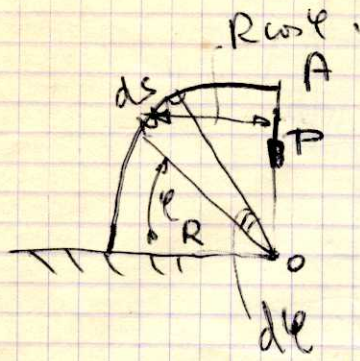 R cosφ
ds
A
P
φ
R
O
dφ